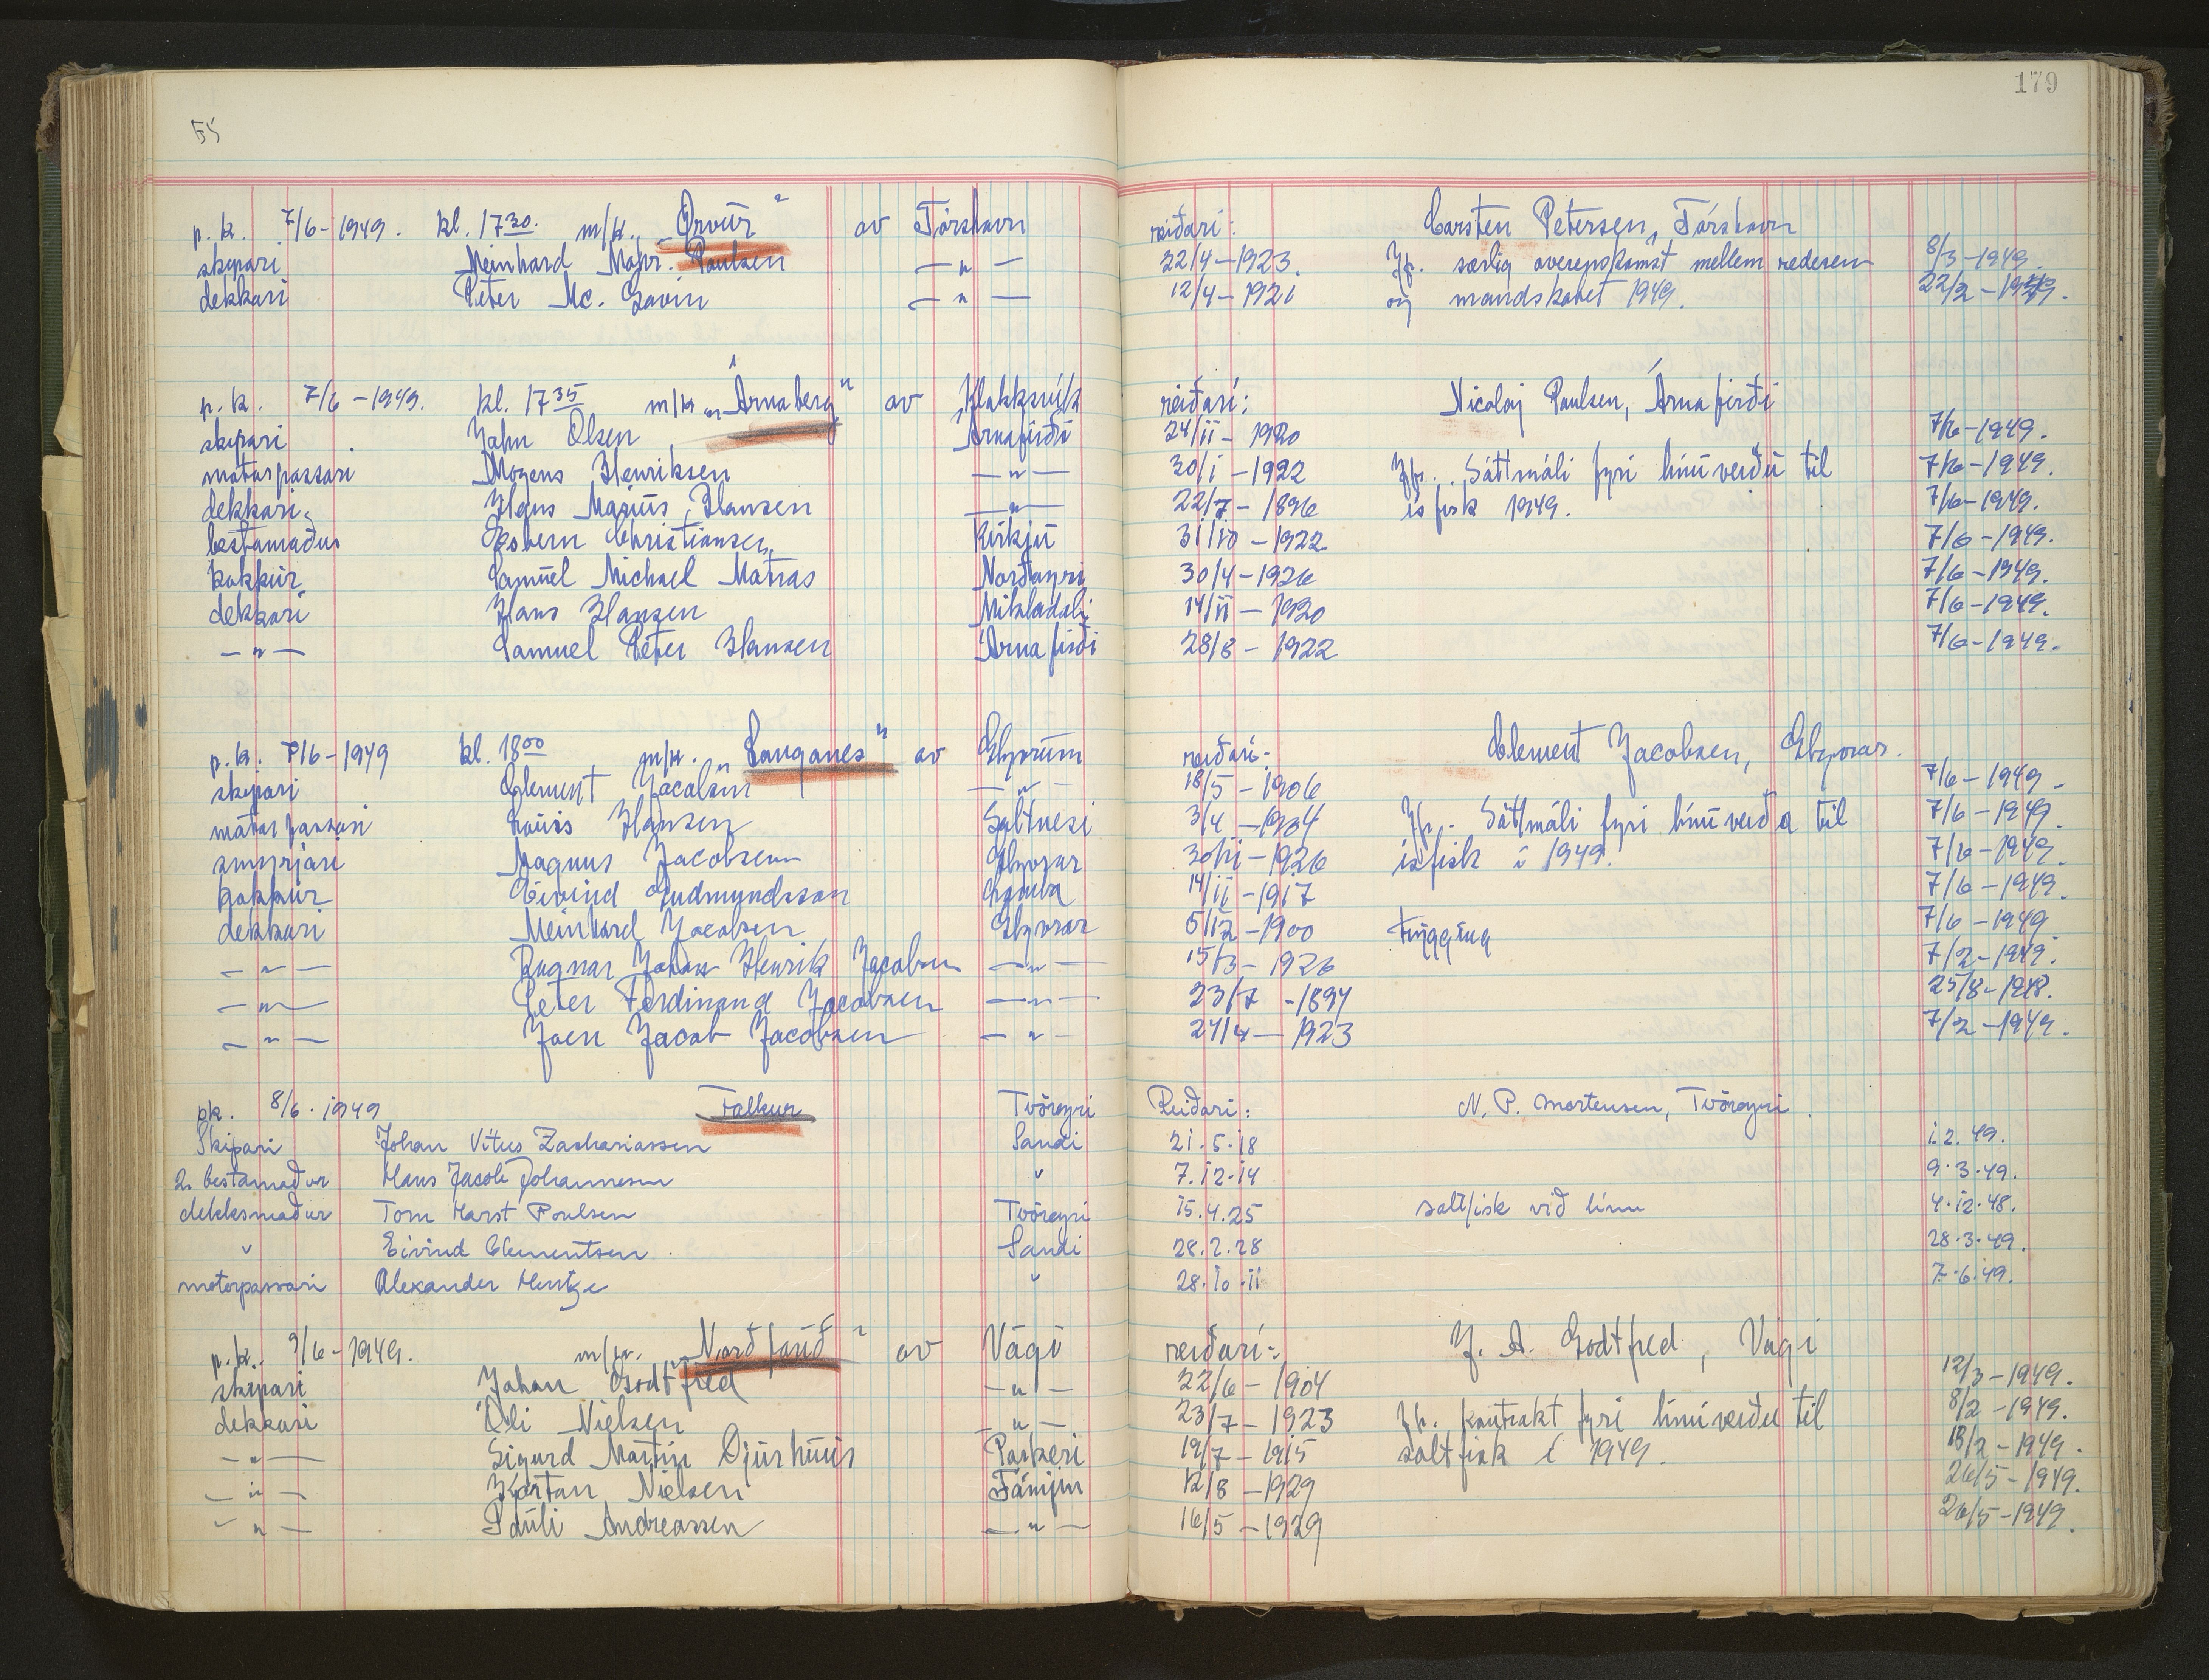 179
p. k. 7/6-1949. kl. 17 30. m/k. „Örvur" av Tórshavn reiðari: Carsten Petersen, Tórshavn
skipari Meinhard Poulsen —"— 22/4-1923. Jfr. særlig overenskomst mellem rederen 8/3-1949.
dekkari Peter Mc. Gavin —"— 12/4-1921 og mandskabet 1949. 22/2-1949.
p. k. 7/6-1949. kl. 17 35 m/k „Árnaberg" av Klakksvík reiðari: Nicolaj Poulsen, Árnafirði
skipari John Olsen Árnafirði 24/11-1920 7/6-1949.
motorpassari Mogens Henriksen —"— 30/1-1922 Jfr. Sáttmáli fyri línuveiðu til 7/6-1949.
dekkari Marius Hansen —"— 22/7-1896 ísfisk 1949. 7/6-1949.
bestamaður Christiansen Kirkju 31/10-1922 7/6-1949.
kokkur Samuel Michael Matras Norðoyri 30/4-1926 7/6-1949.
dekkari Hans Hansen Mikladali 14/11-1920 7/6-1949.
—"— Samuel Peter Hansen Árnafirði 28/8-1922 7/6-1949.
p. k. 7/6-1949 kl. 18 00 m/k. „Langanes" av Glyvrum reiðari: Clement Jacobsen, Glyvrar.
skipari Clement Jacobsen —"— 18/5-1906 7/6-1949
motorpassari Louis Hansen Saltnesi 3/4-1904 Jfr. Sáttmáli fyri línuveiða til 7/6-1949.
smyrjari Magnus Jacobsen Glyvrar 30/11-1926 ísfisk í 1949. 7/6-1949.
kokkur Eivind Gudmundsson 14/11-1917 7/6-1949.
dekkari Meinhard Jacobsen Glyvrar 5/12-1900 trygging 7/6-1949
—"— Ragnar Johan Henrik Jacobsen —"— 15/3-1926 7/2-1949.
—"— Peter Ferdinand Jacobsen —"— 23/7-1894 25/8-1948.
—"— Joen Jacob Jacobsen —"— 24/4-1923 7/2-1949.
pk. 8/6.1949 Falkur Tvöroyri Reiðari: N. P. Mortensen, Tvöroyri.
Skipari Johan Vitus Zachariassen Sandi 21.5.18 1.2.49.
2. bestamaður Hans Jacob Johannesen " 7.12.14 9.3.49.
dekksmaður Tom Harst Poulsen Tvöroyri 15.4.25 saltfisk við línu 4.12.48.
" Eivind Clementsen. Sandi 28.2.28 28.3.49.
motorpassari Alexander Hentze " 28.10.11 7.6.49.
p. k. 9/6-1949. m/k. „Norðfarið" av Vági reiðari: J. A. Godtfred, Vági
skipari Johan Godtfred —"— 22/6-1904 12/3-1949.
dekkari Óli Nielsen —"— 23/7-1923 Jfr. kontrakt fyri línuveiðu til 8/2-1949.
—"— Sigurd Martin Djurhuus Porkeri 19/7-1915 saltfisk í 1949. 18/2-1949.
—"— Kjartan Nielsen Fámjin 12/8-1929 26/5-1949.
—"— Páuli Andreassen —"— 16/5-1929 26/5-1949.